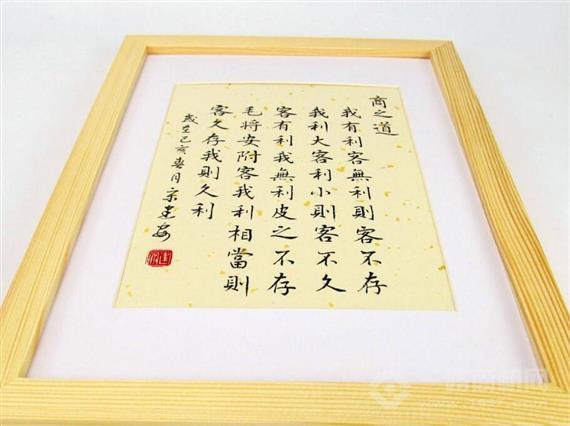 商之道
我有利客無利則客不存
我利大客利小則客不久
客有利我無利皮之不存
毛將安附客我利相當則
客久存我則久利
歲在己亥春月宗建安